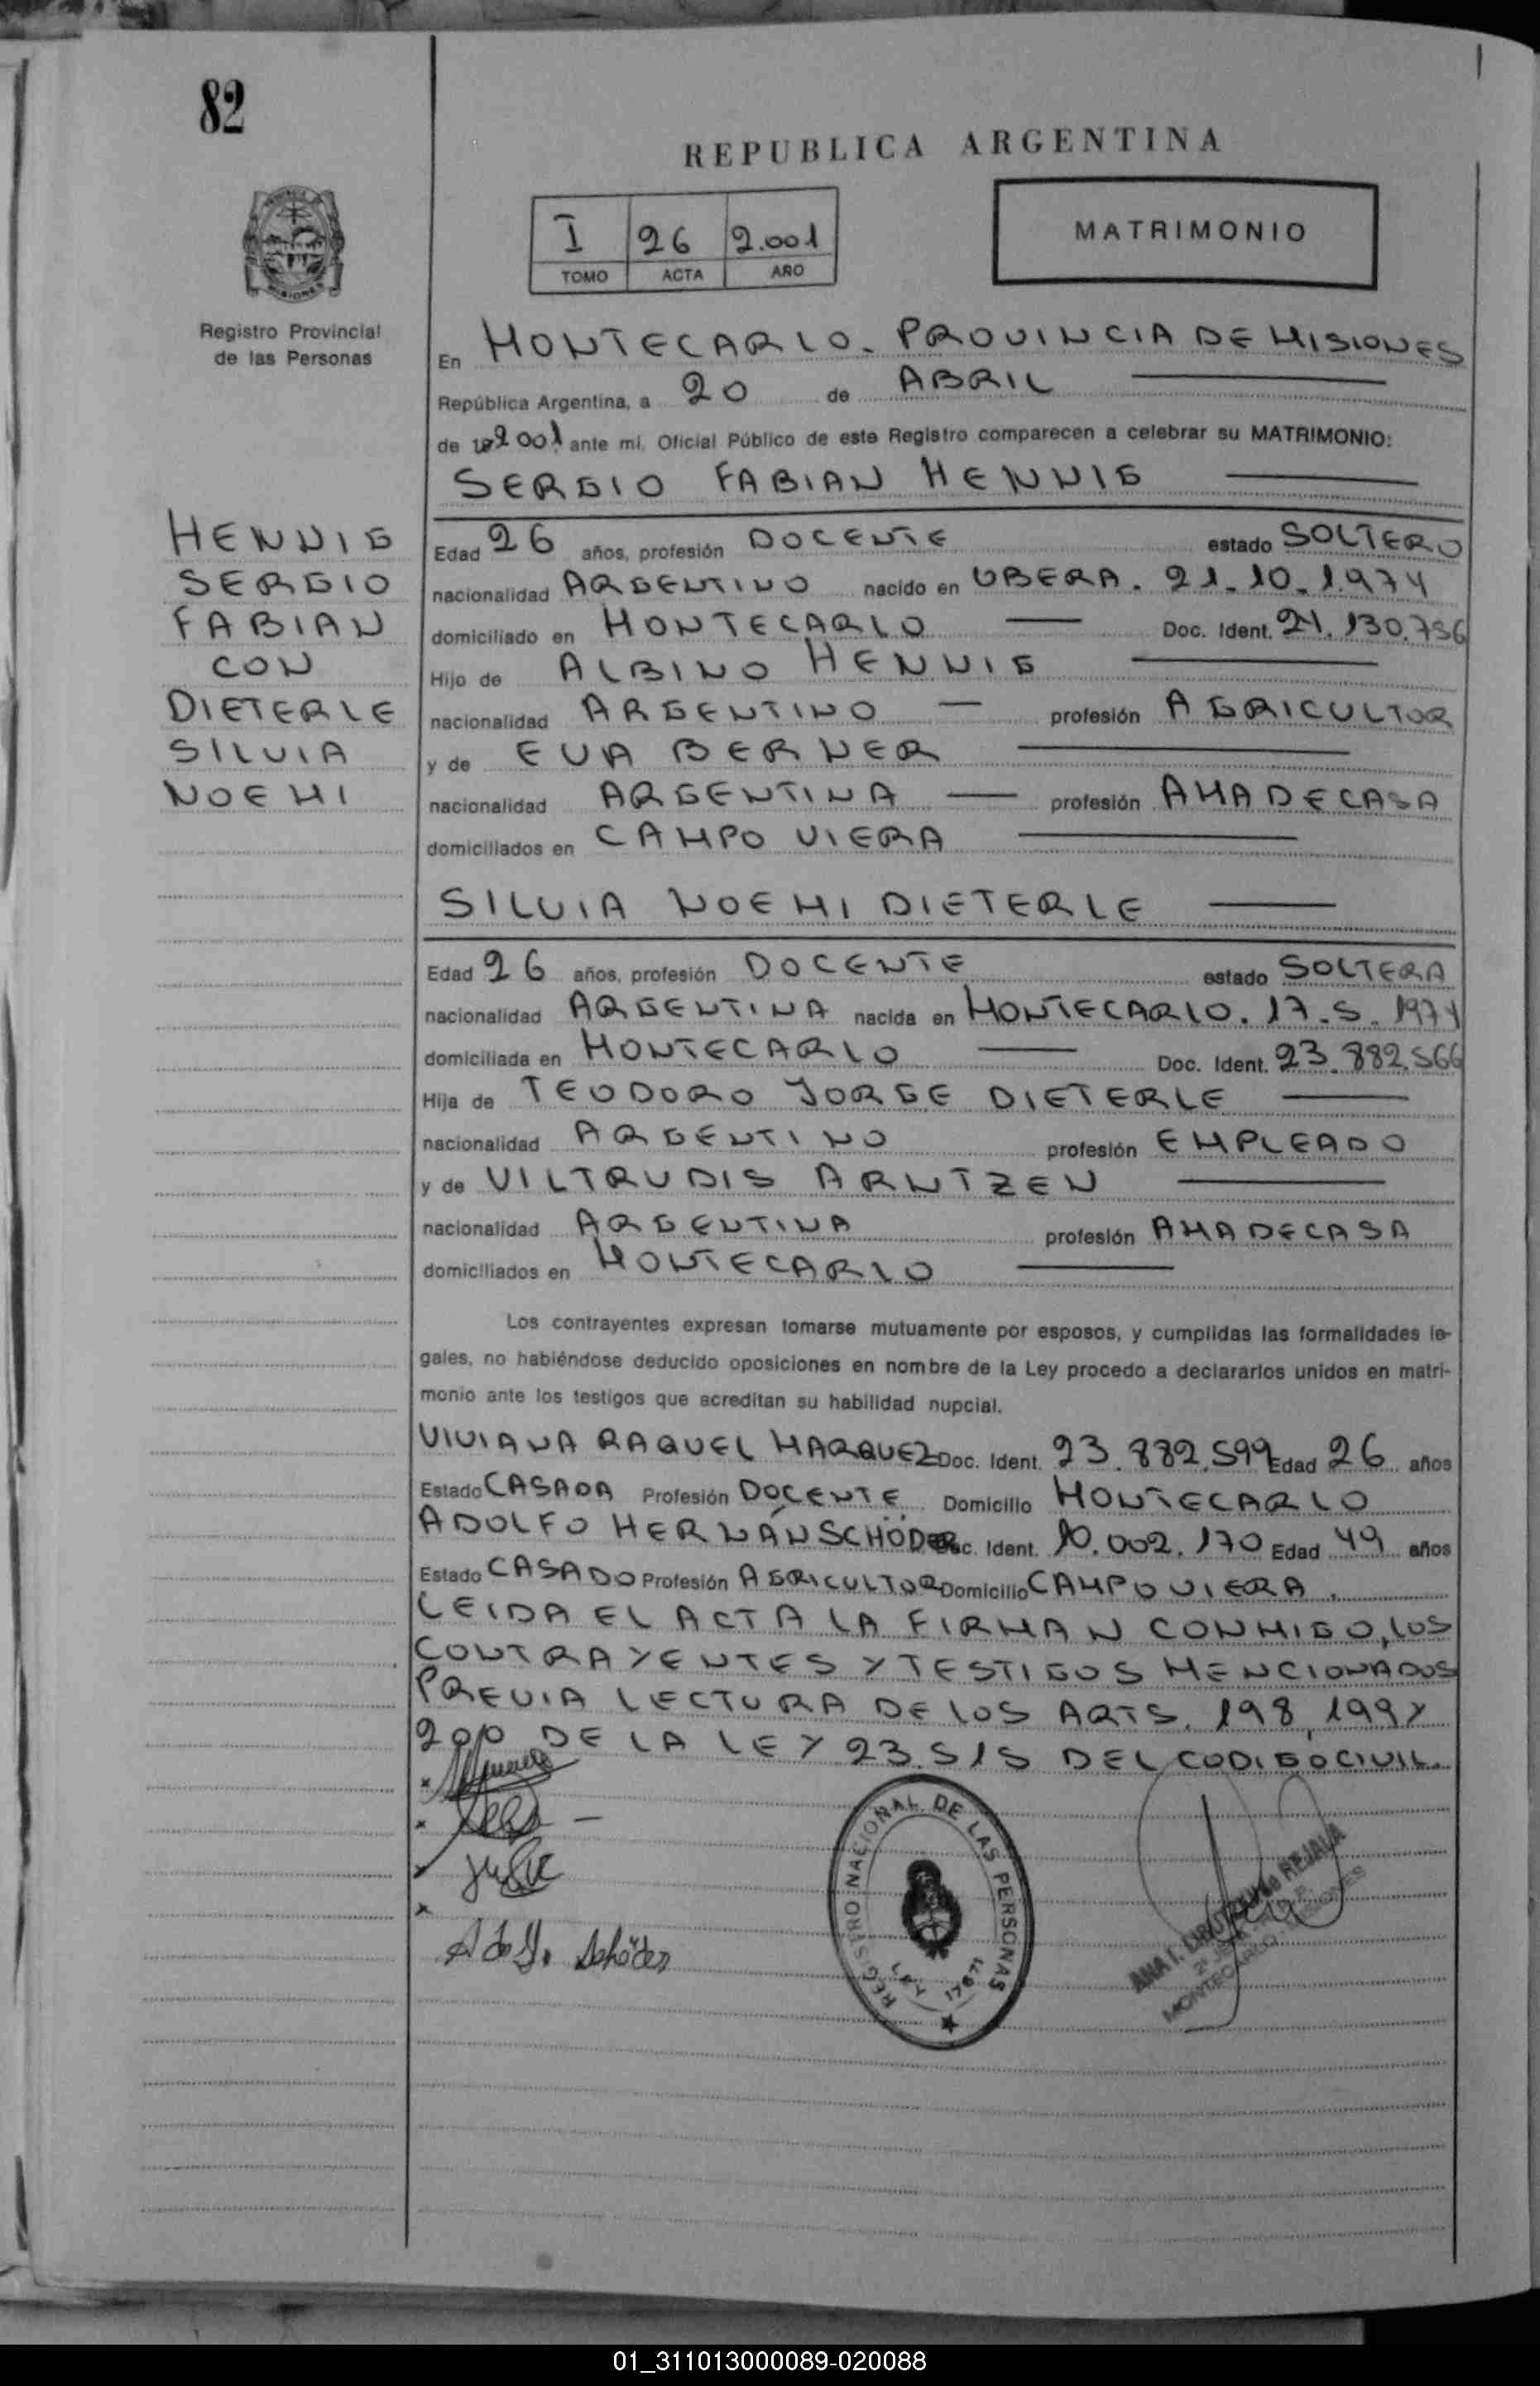 82
REPUBLICA ARGENTINA
I 26 2.001
TOMO ACTA AÑO
MATRIMONIO
Registro Provincial
de las Personas
En MONTECARLO. PROVINCIA DE MISIONES
República Argentina, a 20 de ABRIL
de 2001 ante mi, Oficial Público de este Registro comparecen a celebrar su MATRIMONIO:
SERGIO FABIAN HENNIG
HENNIG
SERGIO
FABIAN
CON
DIETERLE
SILVIA
NOEMI
Edad 26 años, profesión DOCENTE estado SOLTERO
nacionalidad ARGENTINO nacido en OBERA. 21-10-1.974
domiciliado en MONTECARLO Doc. Ident. 24.130.756
Hijo de ALBINO HENNIG
nacionalidad ARGENTINO profesión AGRICULTOR
y de EVA BERNER
nacionalidad ARGENTINA profesión AMA DE CASA
domiciliados en CAMPO VIERA
SILVIA NOEMI DIETERLE
Edad 26 años, profesión DOCENTE estado SOLTERA
nacionalidad ARGENTINA nacida en MONTECARLO. 17.5.1974
domiciliada en MONTECARLO Doc. Ident. 23.882.566
Hija de TEODORO JORGE DIETERLE
nacionalidad ARGENTINO profesión EMPLEADO
y de VILTRUDIS ARNTZEN
nacionalidad ARGENTINA profesión AMA DE CASA
domiciliados en MONTECARLO
Los contrayentes expresan tomarse mutuamente por esposos, y cumplidas las formalidades le-
gales, no habiéndose deducido oposiciones en nombre de la Ley procedo a declararlos unidos en matri-
monio ante los testigos que acreditan su habilidad nupcial.
VIVIANA RAQUEL MARQUEZ Doc. Ident. 23.882.599 Edad 26 años
Estado CASADA Profesión DOCENTE Domicilio MONTECARLO
ADOLFO HERNÁN SCHÖDER Doc. Ident. 10.002.170 Edad 49 años
Estado CASADO Profesión AGRICULTOR Domicilio CAMPO VIERA.
LEIDA EL ACTA LA FIRMAN CONMIGO, LOS
CONTRAYENTES Y TESTIGOS MENCIONADOS
PREVIA LECTURA DE LOS ARTS. 198, 199 Y
200 DE LA LEY 23.515 DEL CODIGO CIVIL.
REGISTRO NACIONAL DE LAS PERSONAS
LEY 17671
ANA I. de REJALA
MONTECARLO - MISIONES
Schöder
01_311013000089-020088